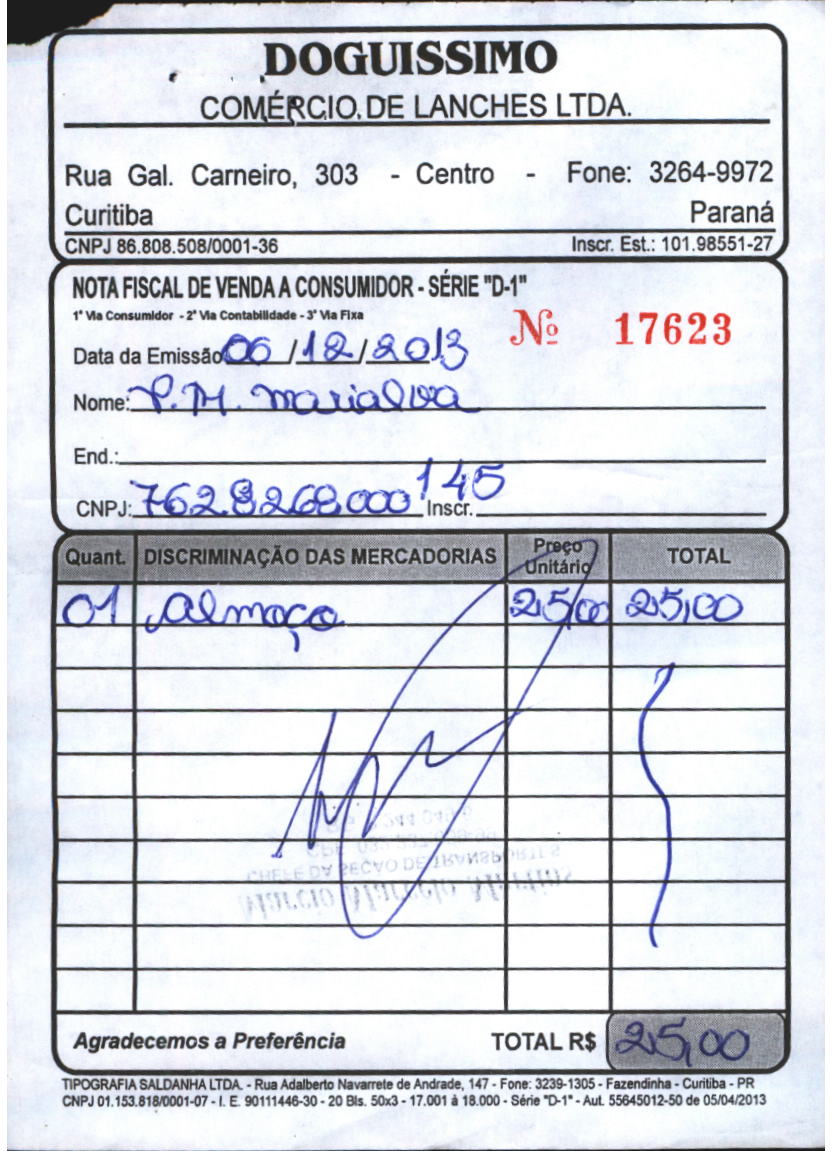 DOGUISSIMO
COMÉRCIO DE LANCHES LTDA.
Rua Gal. Carneiro, 303 - Centro - Fone: 3264-9972
Curitiba Paraná
CNPJ 86.808.508/0001-36 Inscr. Est.: 101.98551-27
NOTA FISCAL DE VENDA A CONSUMIDOR - SÉRIE "D-1"
1ª Via Consumidor - 2ª Via Contabilidade - 3ª Via Fixa
Nº 17623
Data da Emissão 06/12/2013
Nome: P.M. marialva
End.:
CNPJ: 7628268000145 Inscr.
Quant. DISCRIMINAÇÃO DAS MERCADORIAS Preço Unitário TOTAL
01 Almoço 25,00 25,00
CHEFE DA SEÇÃO DE TRANSPORTES
Marcio Martins
Agradecemos a Preferência TOTAL R$ 25,00
TIPOGRAFIA SALDANHA LTDA. - Rua Adalberto Navarrete de Andrade, 147 - Fone: 3239-1305 - Fazendinha - Curitiba - PR
CNPJ 01.153.818/0001-07 - I. E. 90111446-30 - 20 Bls. 50x3 - 17.001 à 18.000 - Série "D-1" - Aut. 55645012-50 de 05/04/2013